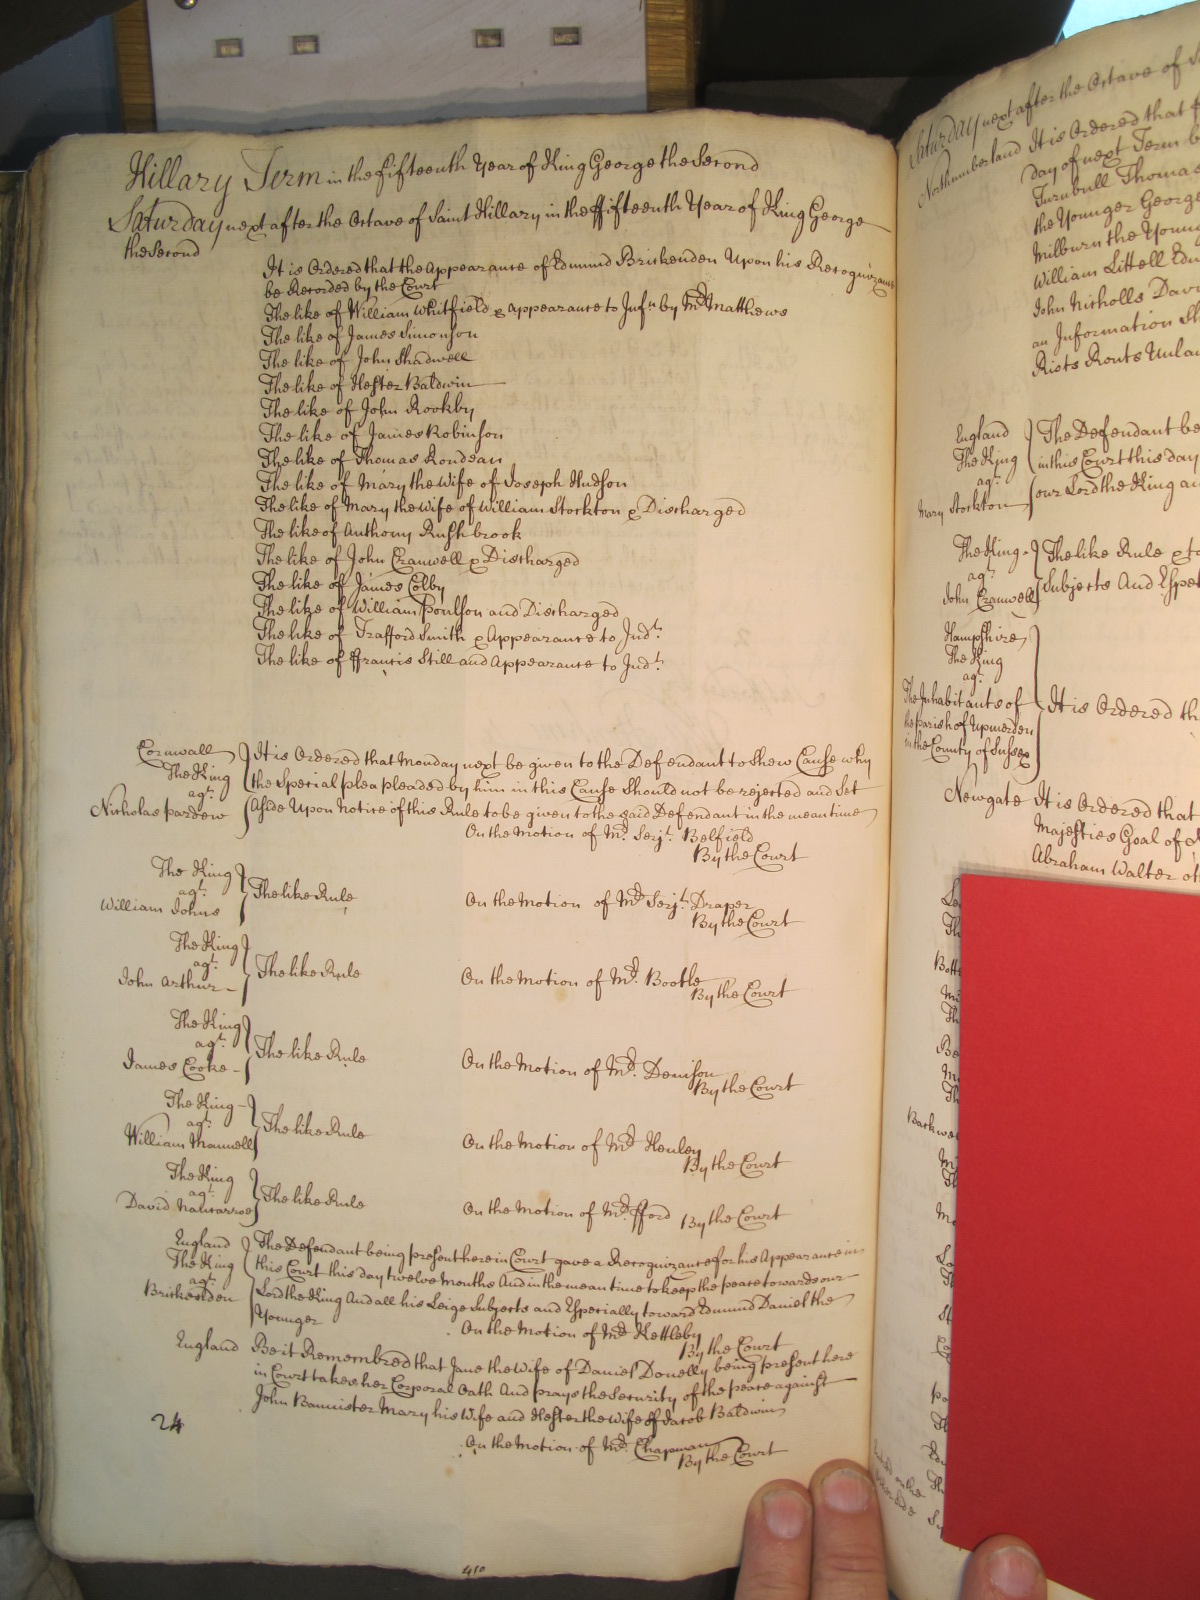 Hillary Term in the fifteenth Year of King George the Second
Saturday next after the Octave of Saint Hillary in the ffifteenth Year of King George
the Second
It is Ordered that the Appearance of Edmund Briskenden Upon his Recognizance
be Recorded by the Court
The like of William Whitfield & appearance to Infn by Mr Matthews
The like of James Simonson
The like of John Shadwell
The like of Hester Baldwin
The like of John Rookby
The like of James Robinson
The like of Thomas Rondeau
The like of Mary the Wife of Joseph Hudson
The like of Mary the Wife of William Stockton & Discharged
The like of Anthony Rushbrook
The like of John Cranwell & Discharged
The like of James Colby
The like of William Poulson and Discharged
The like of Trafford Smith & Appearance to Indt.
The like of ffrancis Still and Appearance to Indt.
Cornwall
The King
agt.
Nicholas Pardew
It is Ordered that Monday next be given to the Defendant to Shew Cause why
the Special plea pleaded by him in this Cause Should not be rejected and Set
Aside Upon Notice of this Rule to be given to the said Defendant in the mean time
On the Motion of Mr. Serjt. Belfield
By the Court
The King
agt.
William Johns
The like Rule
On the Motion of Mr Serjt. Draper
By the Court
The King
agt.
John Arthur
The like Rule
On the Motion of Mr. Bootle
By the Court
The King
agt.
James Cooke
The like Rule
On the Motion of Mr. Denison
By the Court
The King
agt.
William Maunsell
The like Rule
On the Motion of Mr Henley
By the Court
The King
agt.
David
The like Rule
On the Motion of Mr. fford By the Court
England
The King
agt.
Briskenden
The Defendant being present here in Court gave a Recognizance for his Appearance in
this Court this day twelve Months And in the mean time to keep the peace towards our
Lord the King And all his Leige Subjects and Especially toward Edmund Daniel the
Younger
On the Motion of Mr Kettleby
By the Court
England Be it Remembred that Jane the Wife of Daniel Donelly being present here
in Court takes her Corporal Oath And prays the Security of the peace against
John Bannister Mary his Wife and Hester the Wife of Jacob Baldwin
On the Motion of Mr. Chapman
By the Court
24
410
Saturday next after the Octave of
Northumberland It is Ordered that
day of next Term
Turnbull Thomas
the Younger George
Milburn the Young
William Littell
John Nicholls
an Information
Riots Routs
England
The King
agt.
Mary Stockton
The Defendant be
in this Court this day
our Lord the King
The King
agt.
John Cranwell
The like Rule &
Subjects And
Hampshire
The King
agt.
The Inhabitants of
the parish of Upmerden
in the County of Sussex
It is Ordered
Newgate It is Ordered that
Majesties Goal of
Abraham Walter